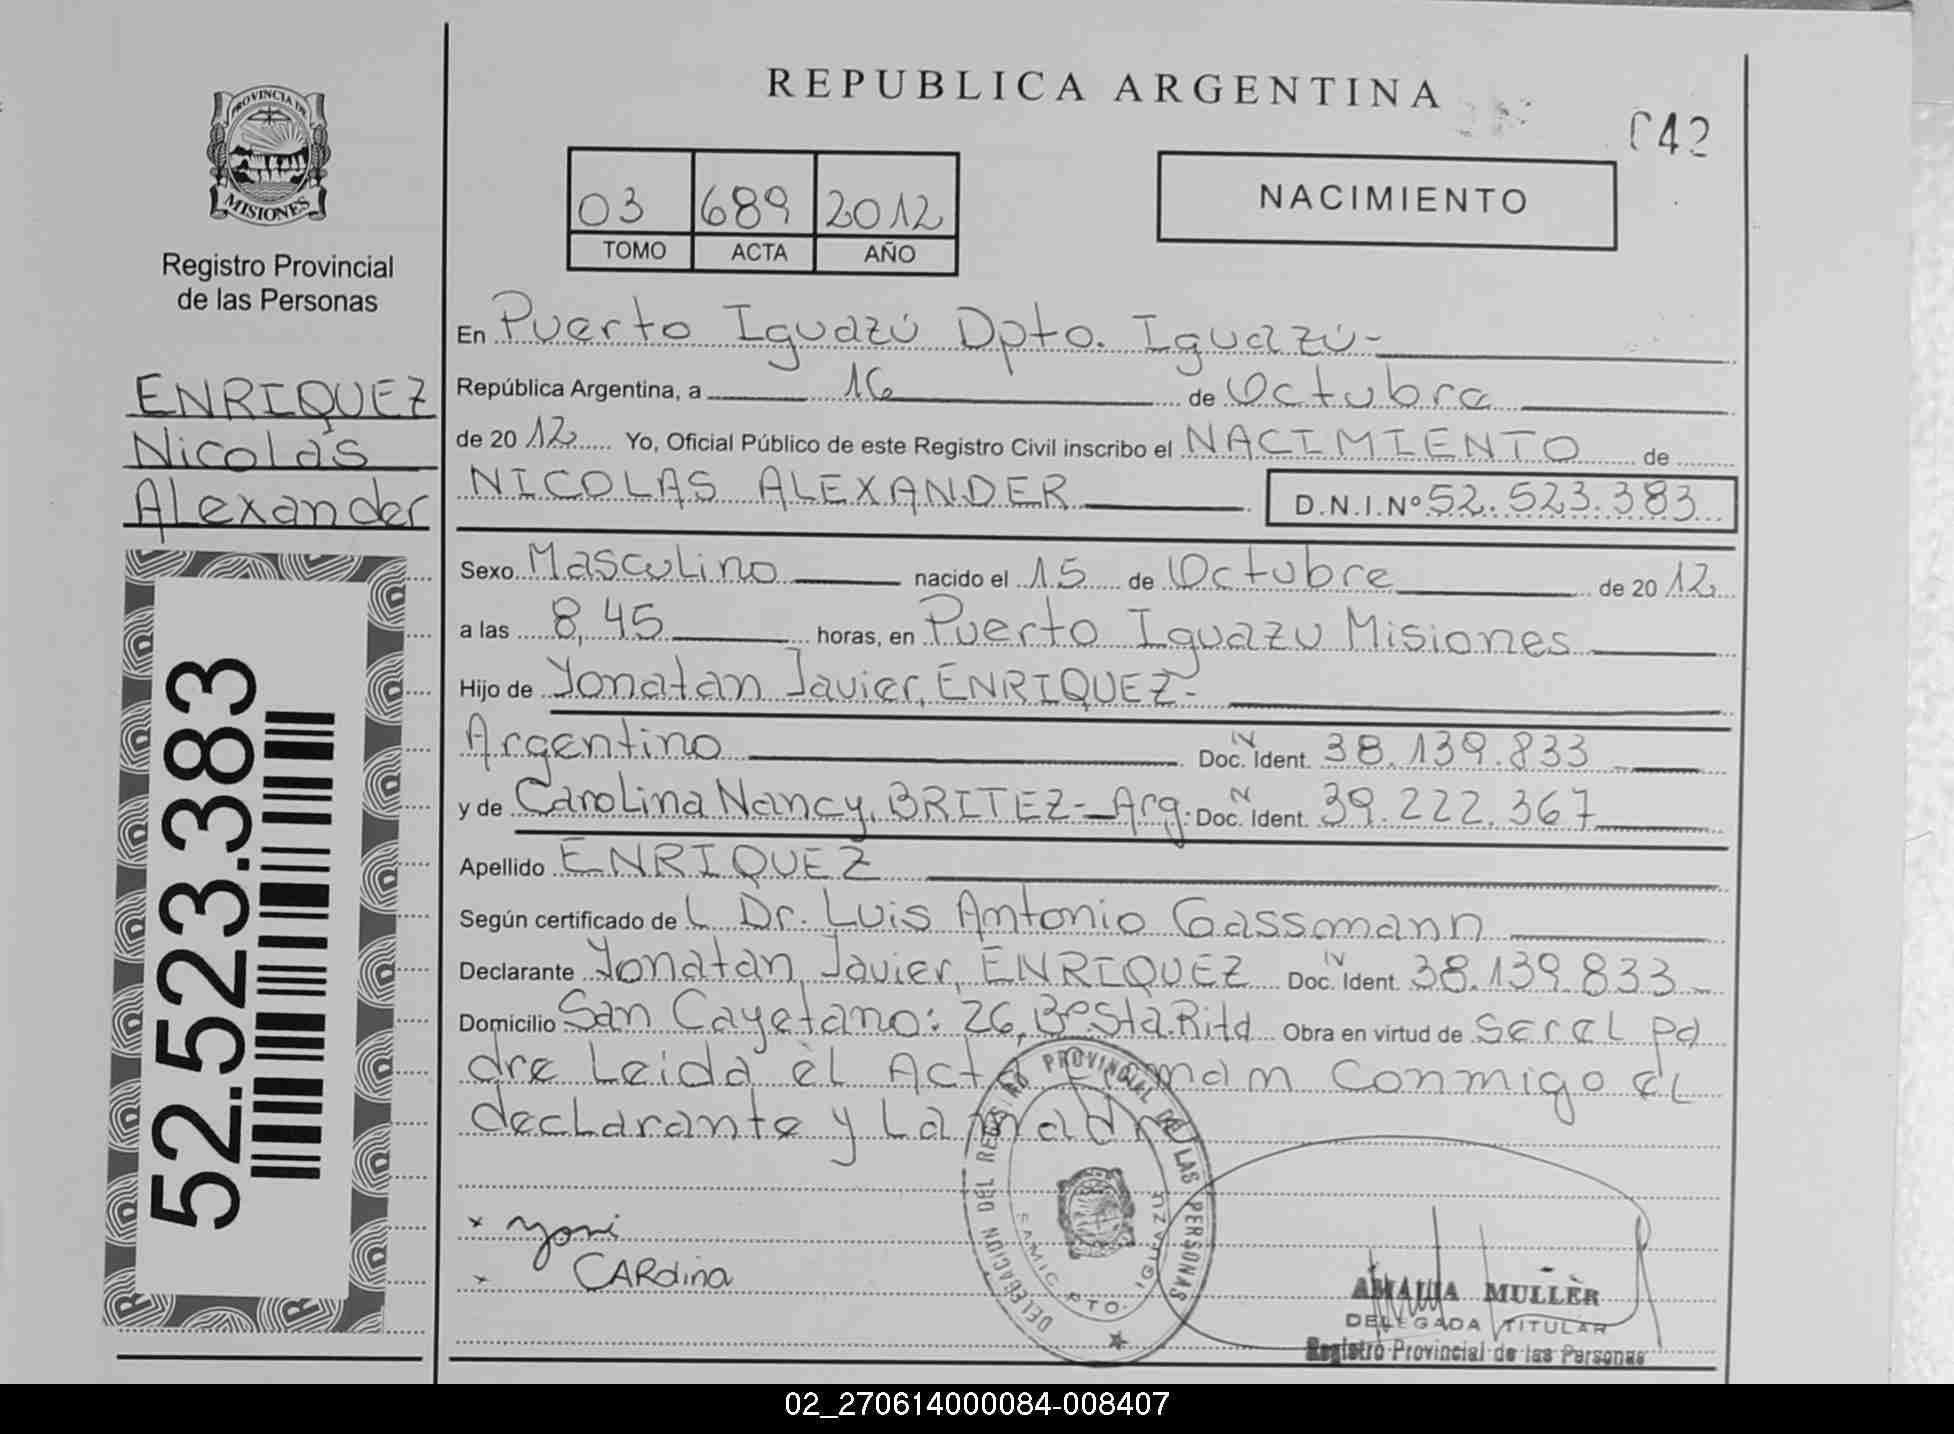 REPUBLICA ARGENTINA
042
PROVINCIA DE
MISIONES
Registro Provincial
de las Personas
03 689 2012
TOMO ACTA AÑO
NACIMIENTO
En Puerto Iguazú Dpto. Iguazú-
República Argentina, a 16 de Octubre
de 2012 Yo, Oficial Público de este Registro Civil inscribo el NACIMIENTO de
NICOLAS ALEXANDER D.N.I.Nº 52.523.383
ENRIQUEZ
Nicolás
Alexander
52.523.383
Sexo Masculino nacido el 15 de Octubre de 2012
a las 8,45 horas, en Puerto Iguazu Misiones
Hijo de Yonatan Javier, ENRIQUEZ-
Argentino Doc. Ident. 38.139.833
y de Carolina Nancy, BRITEZ- Arg. Doc. Ident. 39.222.367
Apellido ENRIQUEZ
Según certificado de L Dr. Luis Antonio Gassmann
Declarante Yonatan Javier, ENRIQUEZ Doc. Ident. 38.139.833
Domicilio San Cayetano: 26, Bº Sta. Rita Obra en virtud de ser el pa
dre Leida el Acta Firman Conmigo el
declarante y La madre
DELEGACION DEL REGISTRO PROVINCIAL DE LAS PERSONAS
PTO. IGUAZU
x Yoni
x CARolina
AMALIA MULLER
DELEGADA TITULAR
Registro Provincial de las Personas
02_270614000084-008407